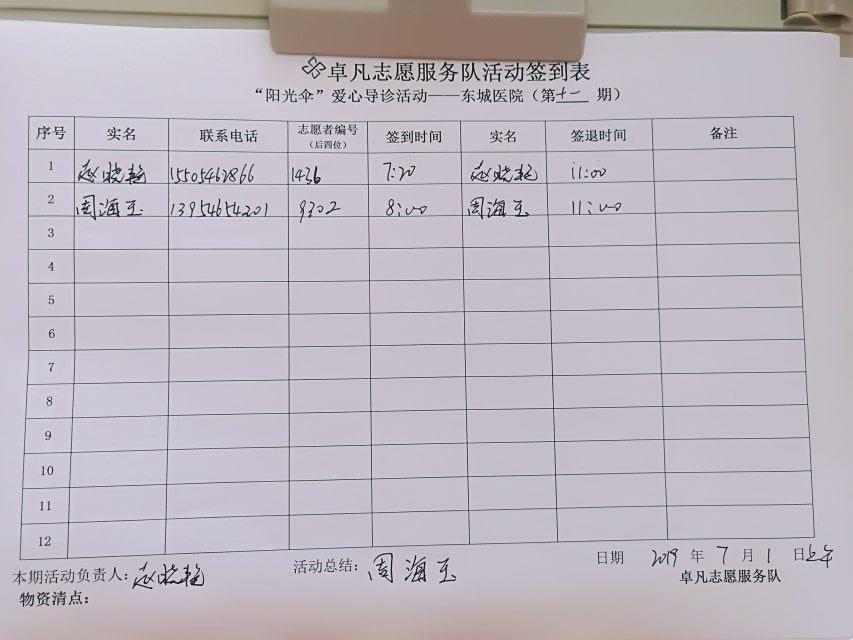 卓凡志愿服务队活动签到表
“阳光伞”爱心导诊活动——东城医院（第十二期）
序号 实名 联系电话 志愿者编号（后四位） 签到时间 实名 签退时间 备注
1 赵晓艳 15505462866 1436 7:20 赵晓艳 11:00
2 周海玉 13954654201 9302 8:00 周海玉 11:00
3
4
5
6
7
8
9
10
11
12
本期活动负责人：赵晓艳 活动总结：周海玉 日期 2019 年 7 月 1 日上午
物资清点： 卓凡志愿服务队